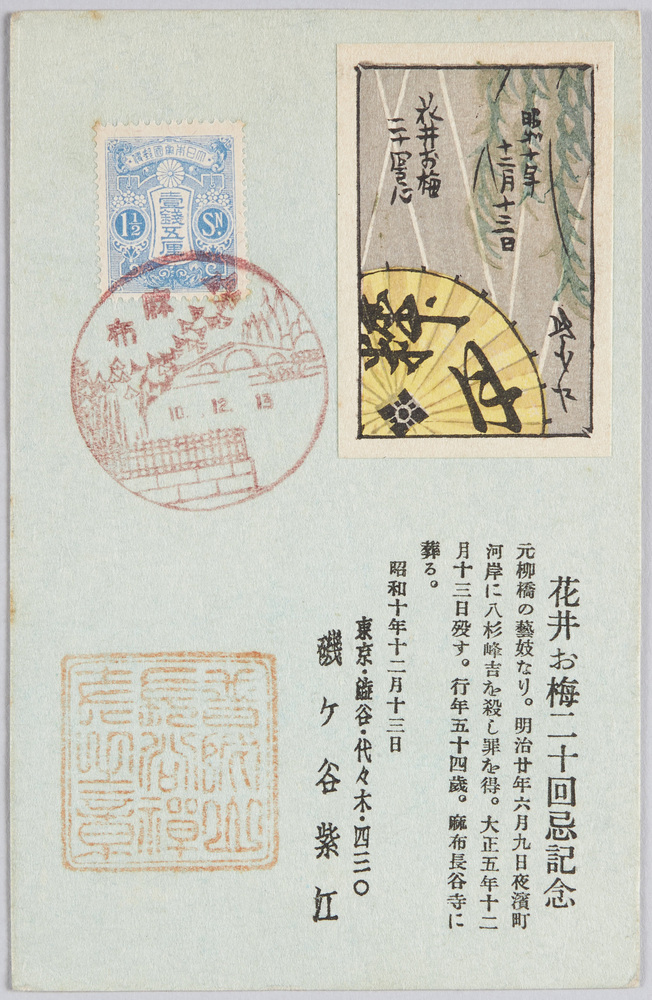 昭和十年
十二月十三日
花井お梅
大日本帝國郵便
壹錢五厘
1½
SN
麻布
10.12.13
花井お梅二十回忌記念
元柳橋の藝妓なり。明治廿年六月九日夜濱町
河岸に八杉峰吉を殺し罪を得。大正五年十二
月十三日歿す。行年五十四歲。麻布長谷寺に
葬る。
昭和十年十二月十三日
東京・澁谷・代々木・四三〇
磯ケ谷紫江